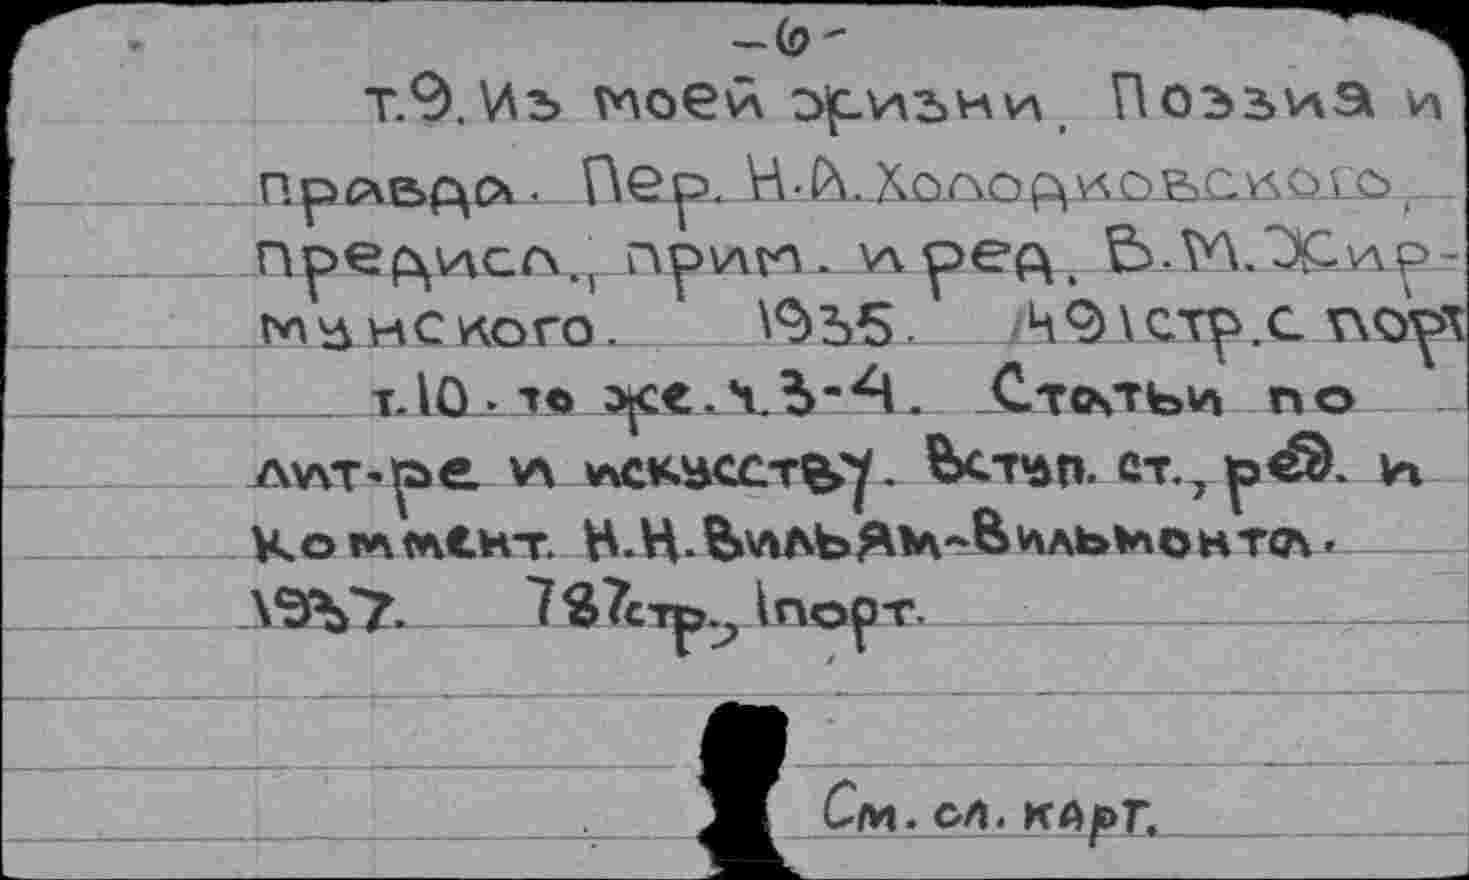 -6-
т.9. Из моей жизни. Поэзия и
правда. Пер. Н.А. Холодковского,
предисл., прим. и ред. В.М. Жир-
мунского. 1935. 491стр. с порт
т.10. то же. ч. 3-4. Статьи по
лит-ре и искусству. Вступ. ст., ред. и
коммент. Н.Н. Вильям-Вильмонта.
1937. 787стр., 1порт.
См. сл. карт.